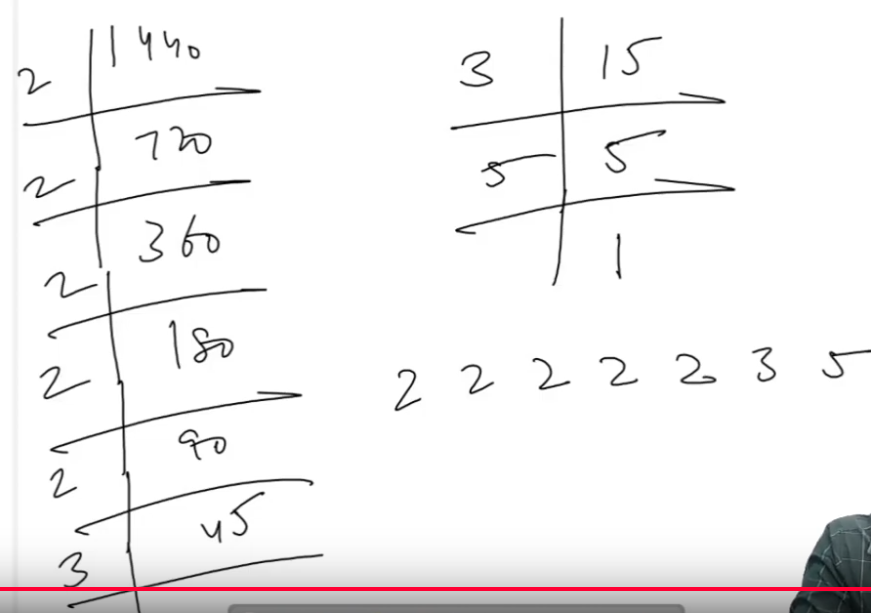 2 1440
2 720
2 360
2 180
2 90
3 45
3 15
5 5
1
2 2 2 2 2 3 5